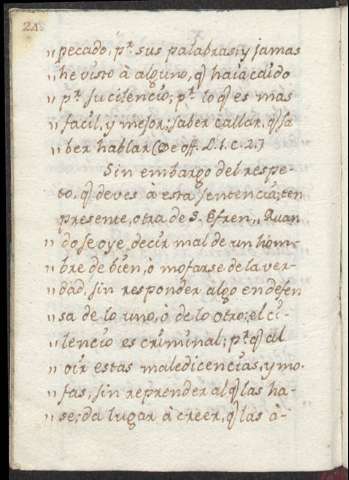 21.
„ pecado, pr. sus palabras; y jamas
„ he visto à alguno, q̃ haia caido
„ pr. su cilencio; pr. lo q̃ es mas
„ facil, y mejor; saber callar, q̃ sa
„ ber hablar (De off. L. 1. c. 2.)
Sin embargo del respe-
to, q̃ deves à esta sentencia; ten
presente, otra de S. Efren „ Quan
„ do se oye, decir mal de un hom-
„ bre de bien, ò mofarse de la ver-
„ dad, sin responder algo en defen
„ sa de lo uno, ò de lo otro; el ci-
„ lencio es criminal; pr. q̃ al
„ oir estas maledicencias, y mo-
„ fas, sin reprender al q̃ las ha-
„ se; da lugar à creer, q̃ las à-